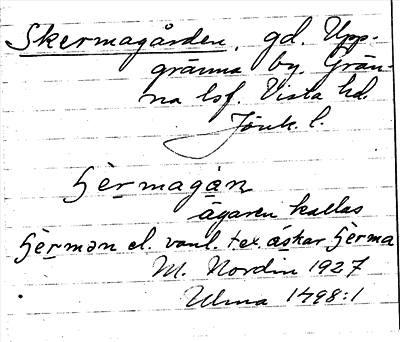 Skermagården, gd. Upp-
gränna by. Grän-
na lsf. Vista hd.
Jönk. l.
ʃèrmagạ̊n
ägaren kallas
ʃèrmən el. vanl. tex. åskar ʃèrma
M. Nordin 1927
Ulma 1498:1